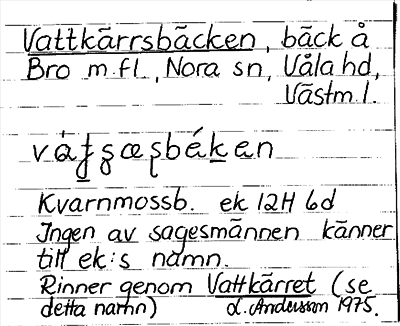 Vattkärrsbäcken, bäck å
Bro m.fl., Nora sn, Våla hd,
Västm.l.
Kvarnmossb. ek 12H 6d
Ingen av sagesmännen känner
till ek:s namn.
Rinner genom Vattkärret (se
detta namn) L. Andersson 1975.